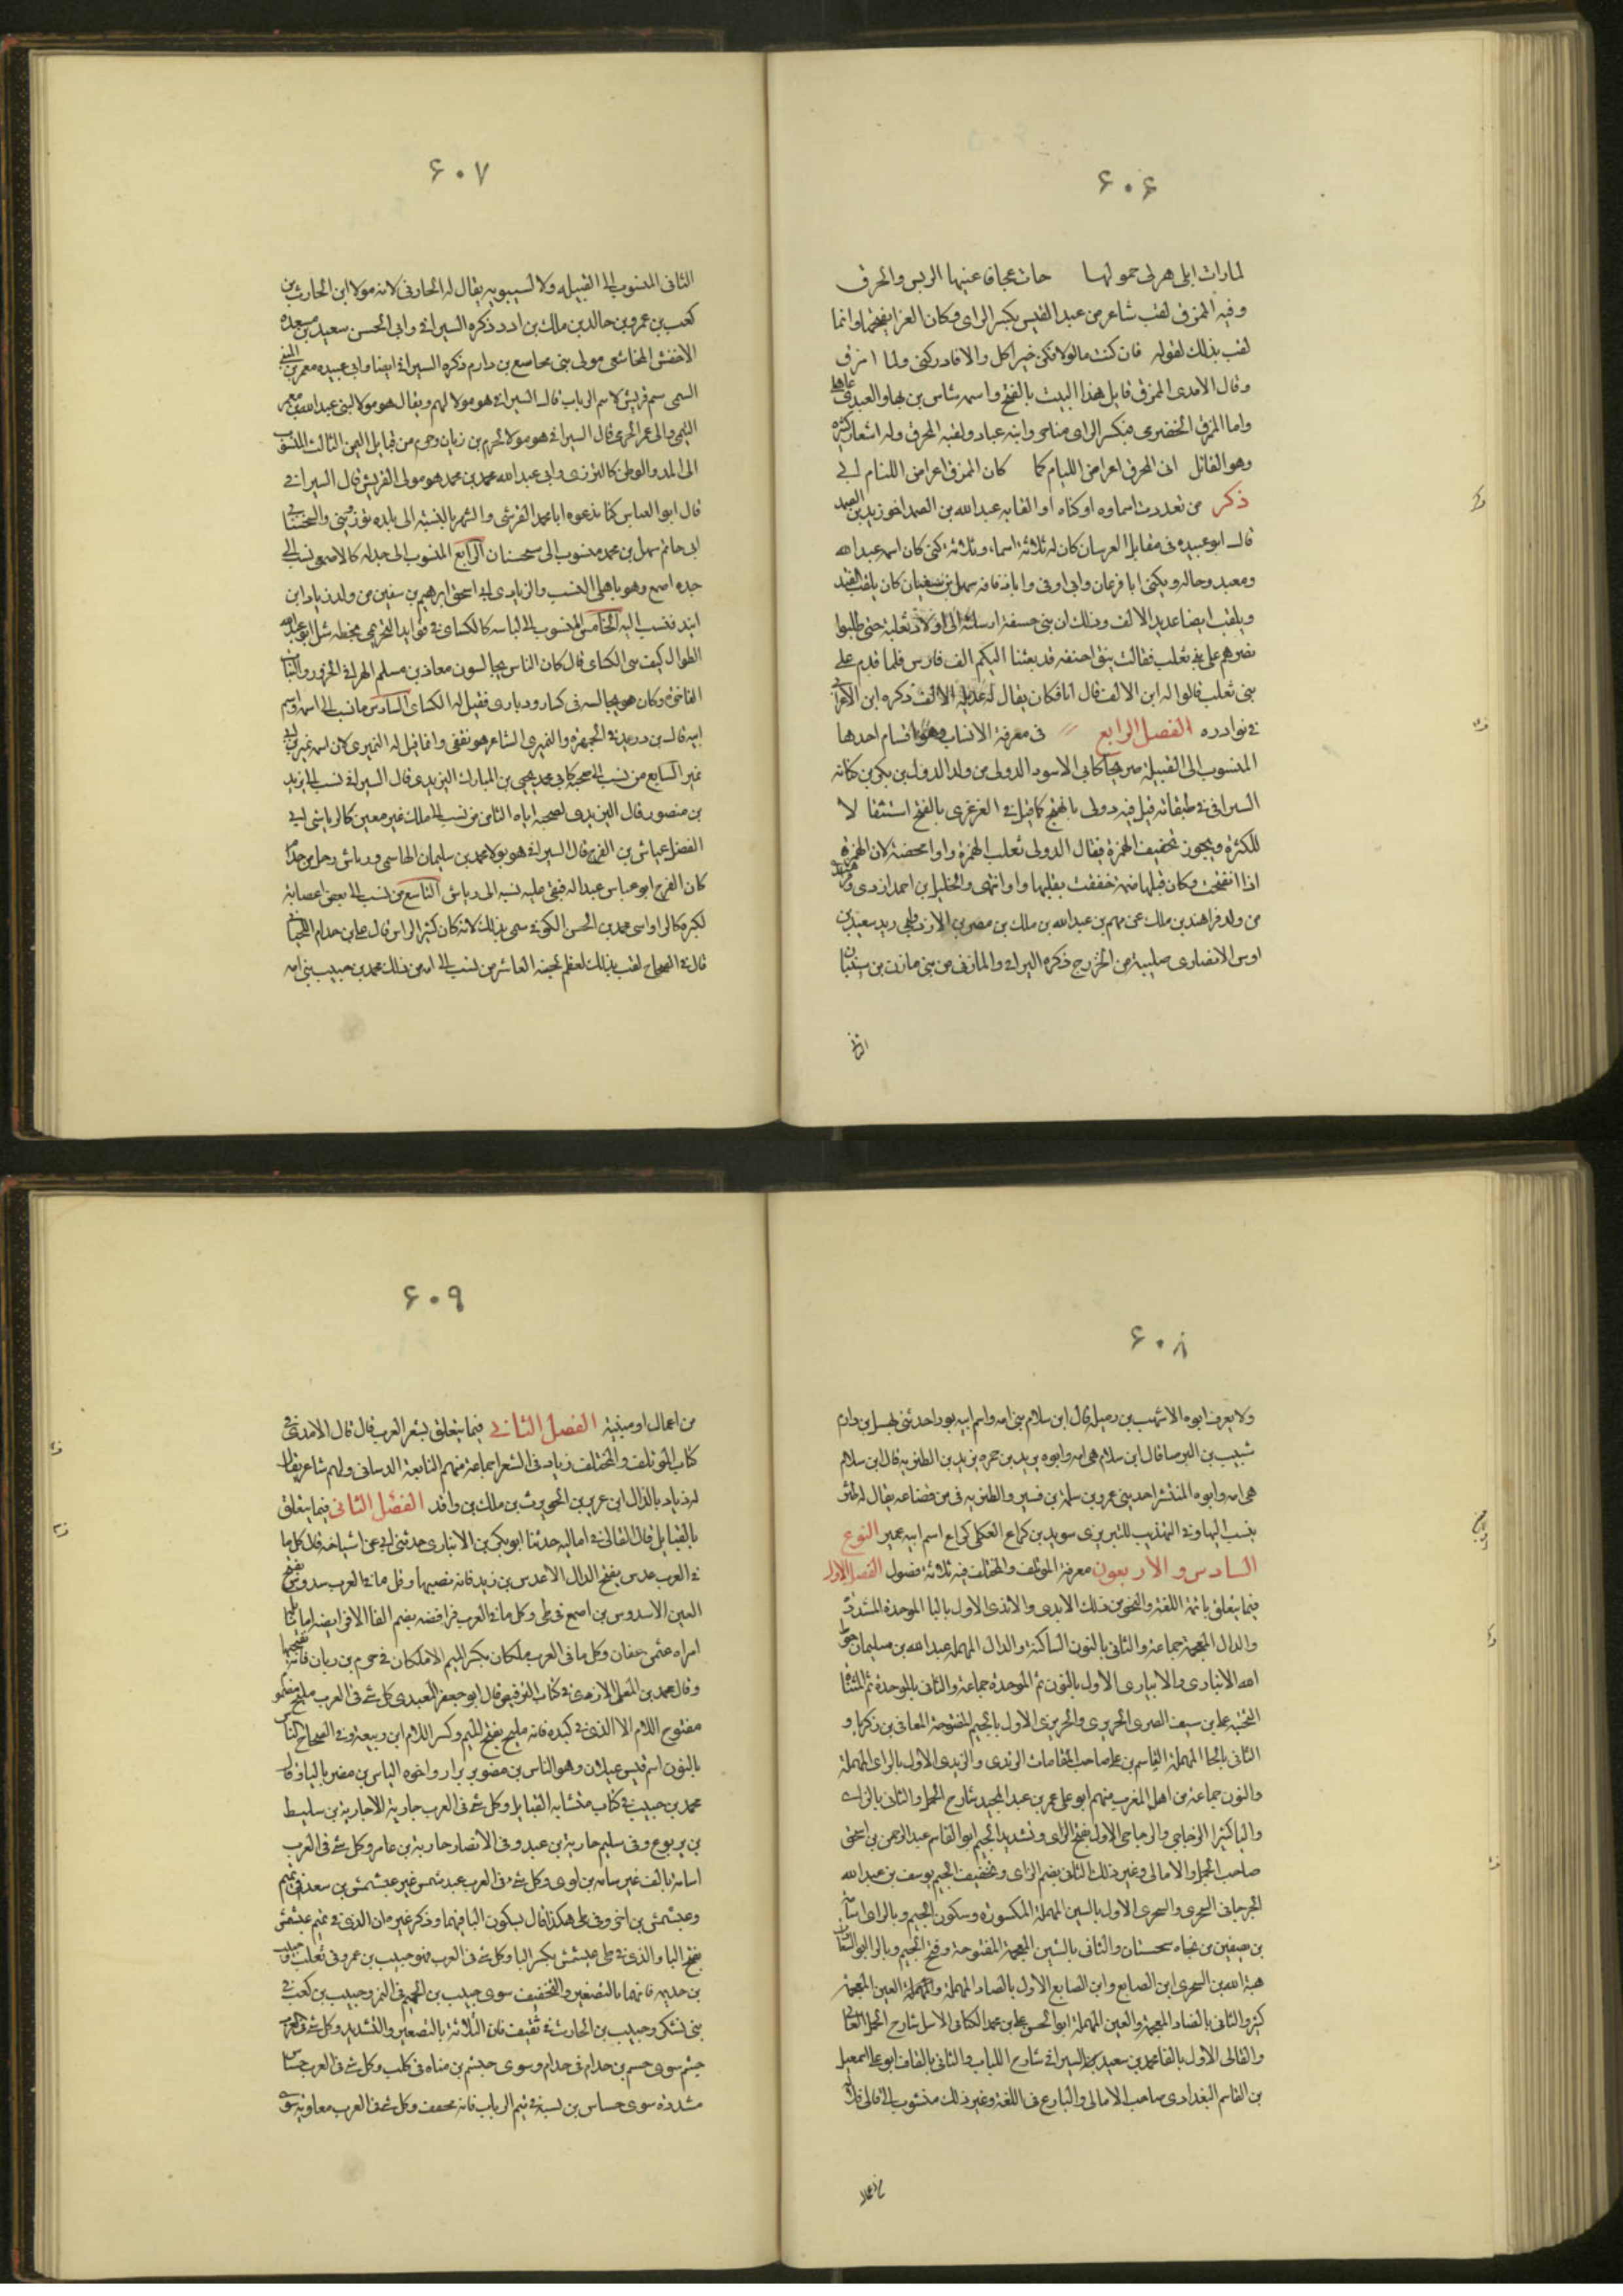 ۶۰۶
لمارات ابلى هزلى حمولها جات عجافا عنيها الريس والخرق
وفيه الممزق لقب شاعر من عبد القيس بكسر الزاى وكان الفرا يفتحها وانما
لقب بذلك لقوله فان كنت ماكولا فكن خير اكل والا فادركنى ولما امزق
وقال الامدى الممزق قايل هذا البيت بالفتح واسمه شاس بن نهار العبدى
واما الممزق الحضرمى فبكسر الزاى متاخر وابنه عباد ولقبه المخرق وله اشعار كثيرة
وهو القائل انى المخرق اعراض الليام كما كان الممزق اعراض اللئام ابى
ذكر من تعددت اسماوه او كناه او القابه عبد الله بن الصمة اخو زيد بن الصمه
قال ابو عبيده فى مقاتل الفرسان كان له ثلاثة اسما، وثلاثة كنى كان اسمه عبد الله
ومعبد وخالد ويكنى ابا فرعان وابى اوفى وابا ذفافه سهل بن شيبان كان يلقب الفند
ويلقب ايضا عديد الالف وذلك ان بنى حنيفة ارسلته الى اولاد ثعلبة حين طلبوا
نصرهم على بنى تغلب فقالت بنو حنيفه قد بعثنا اليكم الف فارس فلما قدم على
بنى ثعلب قالوا له اين الالف قال انا فكان يقال له عديد الالف ذكره ابن الاعرابى
فى نوادره الفصل الرابع فى معرفة الانساب وهو اقسام احدها
المنسوب الى القبيلة صريحا كابى الاسود الدولى من ولد الدول بن بكر بن كنانه
السيرافى فى طبقاته قيل فيه دولى بالفتح كما قيل فى النمر نمرى بالفتح استثقالا
للكثرة ويجوز تخفيف الهمزة فيقال الدولى بقلب الهمزة واوا محضة لان الهمزة
اذا انفتحت وكان قبلها ضمه تخففت بقلبها واوا انتهى والخليل بن احمد ازدى
من ولد فراهيد بن ملك بن فهم بن عبد الله بن ملك بن مضر بن الازد وابى زيد سعيد بن
اوس الانصارى صليبة من الخزرج ذكره السيرافى والمازنى من بنى مازن بن شيبان
الثانى
۶۰۷
الثانى المنسوب الى القبيله ولاء كسيبويه يقال له الحارثى لانه مولا ابن الحارث بن
كعب بن عمرو بن خالد بن ملك بن ادد ذكره السيرافى وابى الحسن سعيد بن مسعده
الاخفش المجاشعى مولى بنى مجاشع بن دارم ذكره السيرافى ايضا وابى عبيده معمر بن المثنى
التيمى تيم قريش لا تيم الرباب قال السيرافى هو مولا لهم ويقال هو مولا لبنى عبد الله بن معمر
التيمى وابى عمر الجرمى قال السيرافى هو مولا لجرم بن زبان وجرم من قبايل اليمن الثالث المنسوب
الى البلد والوطن كالتوزى وابى عبد الله محمد بن محمد هو مولى القريش قال السيرافى
قال ابو العباس كنا ندعوه ابا محمد القرشى واشتهر بالنسبة الى بلده توز
ابى حاتم سهل بن محمد منسوب الى سجستان الرابع المنسوب الى جد له كالاصمعى نسب الى
جده اصمع وهو باهلى النسب والزيادى ابى اسحق ابرهيم بن سفين من ولد زياد ابن
ابيه فنسب اليه الخامس المنسوب الى لباسه كالكساى فى فوايد النجيرمى بخطه سئل ابو عبد الله
الطوال كيف سمى الكساى قال كان الناس يجالسون معاذ بن مسلم الهرا فى الخزوز والثياب
الفاخرة وكان هو يجالسه فى كسا روذبارى فقيل له الكساى السادس ما نسب الى اسمه واسم
ابيه قال بن دريد فى الجمهرة والنميرى الشاعر هو ثقفى وانما قيل له النميرى لان اسمه نمير بن ابى
نمير السابع من نسب الى من صحبه كابى محمد يحيى بن المبارك اليزيدى قال السيرافى نسب الى يزيد
بن منصور قال اليزيدى لصحبته اياه الثامن من نسب الى ملك غير معين كالرياشى ابى
الفضل عباس بن الفرج قال السيرافى هو مولا محمد بن سليمان الهاشمى ورياش رجل من جذام
كان الفرج ابو عباس عبدا له فبقى عليه نسبه الى رياش التاسع من نسب الى بعض اعضايه
لكبره كالرواسى محمد بن الحسن الكوفى سمى بذلك لانه كان كبير الراس قال على بن حازم اللحيانى
قال فى الصحاح لقب بذلك لعظم لحيته العاشر من نسب الى امه من ذلك محمد بن حبيب بنى امه
۶۰۸
ولا يعرف ابوه الاشهب بن رميله قال ابن سلام بنى امه واسم ابيه ثور احد بنى نهشل بن دارم
شبيب بن البرصا قال ابن سلام هى امه وابوه يزيد بن حمزه يزيد بن الطثريه قال ابن سلام
هى امه وابوه المنتشر احد بنى عمرو بن سلمة بن قشير والطثريه فى من قضاعه يقال لهم طثر
ينسب اليها وفى التهذيب للتبريزى سويد بن كراع العكلى كراع اسم ابيه عمير النوع
السادس والاربعون معرفة الموتلف والمختلف فيه ثلاثة فصول الفصل الاول
فيما يتعلق بائمة اللغة والنحو من ذلك الابدى والاندى الاول بالبا الموحدة المشددة
والدال المعجمة جماعة والثانى بالنون الساكنة والدال المهملة عبد الله بن سليمان بن حوط
الله الانبارى والابيارى الاول بالنون ثم الموحدة جماعة والثانى بالموحدة ثم المثناة
التحتيه على بن سيف المصرى الجريرى والحريرى الاول بالجيم المفتوحة المعافى بن زكريا و
الثانى بالحا المهملة القاسم بن على صاحب المقامات الرندى والزيدى الاول بالراى المهملة
والنون جماعة من اهل المغرب منهم ابو على عمر بن عبد المجيد شارح الجمل والثانى بالزاى
واليا كثير الزجاجى والزجاجى الاول بفتح الزاى وتشديد الجيم ابو القاسم عبد الرحمن بن اسحق
صاحب الجمل والامالى وغير ذلك الثانى بضم الزاى وتخفيف الجيم يوسف بن عبد الله
الجرجانى السجزى والشجرى الاول بالسين المهملة المكسورة وسكون الجيم وبالزاى
بن من نحاه سجستان والثانى بالشين المعجمة المفتوحة وفتح الجيم وبالرا ابو السعادات
هبة الله بن الشجرى ابن الصايغ وابن الضايع الاول بالصاد المهملة والعين المعجمة
كثير والثانى بالضاد المعجمة والعين المهملة ابو الحسن على بن محمد الكتامى الاشبيلى شارح الجمل الفالى
والقالى الاول بالفا محمد بن سعيد السيرافى شارح اللباب والثانى بالقاف ابو على اسمعيل
بن القاسم البغدادى صاحب الامالى والبارع فى اللغة وغير ذلك منسوب الى قالى قلا
من اعمال
۶۰۹
من اعمال ارمينية الفصل الثانى فيما يتعلق بشعر العرب قال قال الامدى فى
كتاب الموتلف والمختلف زياد فى الشعرا جماعة منهم النابغة الذبيانى ولهم شاعر يقال
له ذياد بالذال ابن عزيز بن الحويرث بن ملك بن واقد الفصل الثانى فيما يتعلق
بالقبايل قال القالى فى اماليه حدثنا ابو بكر بن الانبارى حدثنى ابى عن اشياخه قال كل ما
فى العرب عدس بفتح الدال الا عدس بن زيد فانه بضمها وكل ما فى العرب سدوس بفتح
السين الا سدوس بن اصمع فى طى وكل ما فى العرب فرافصه بضم الفا الا فرافصه ابا نائله
امراة عثمن عفان وكل ما فى العرب ملكان بكسر الميم الا ملكان فى جرم بن زبان فانه بفتحها
وقال محمد بن المعلى الازدى فى كتاب الترقيص قال ابو جعفر العبدى كل شى فى العرب مليح
مفتوح اللام الا الذى فى كنده فانه مليح بفتح الميم وكسر اللام ابن ربيعة وفى الصحاح الناس
بالنون اسم قيس عيلان وهو الناس بن مضر بن نزار واخوه الياس بن مضر باليا وقال
محمد بن حبيب فى كتاب متشابه القبايل وكل شى فى العرب حارثة الا جارية بن سليط
بن يربوع وفى سليم جارية بن عبد وفى الانصار جارية بن عامر وكل شى فى العرب
اسامة بالف غير سامه بن لوى وكل شى فى العرب عبد شمس غير عبشمس بن سعد فى تميم
وعبشمس بن اخزم فى طى هكذا قال بسكون البا فيهما وذكر غيره ان الذى فى تميم عبشمس
بفتح البا والذى فى طى عبشمس بكسر البا وكل شى فى العرب فهو حبيب بن عمرو فى تغلب وحبيب
بن جذيمه فانهما بالتصغير والتخفيف سوى حبيب بن الجهم فى النمر وحبيب بن كعب فى
بنى يشكر وحبيب بن الحارث فى ثقيف فان الثلاثة بالتصغير والتشديد وكل شى فى العرب
جشم سوى حسم بن جذام فى جذام وسوى حيشم بن مناة فى كلب وكل شى فى العرب حساس
مشدده سوى حساس بن نشبة فى تيم الرباب فانه مخفف وكل شى فى العرب معاوية سوى